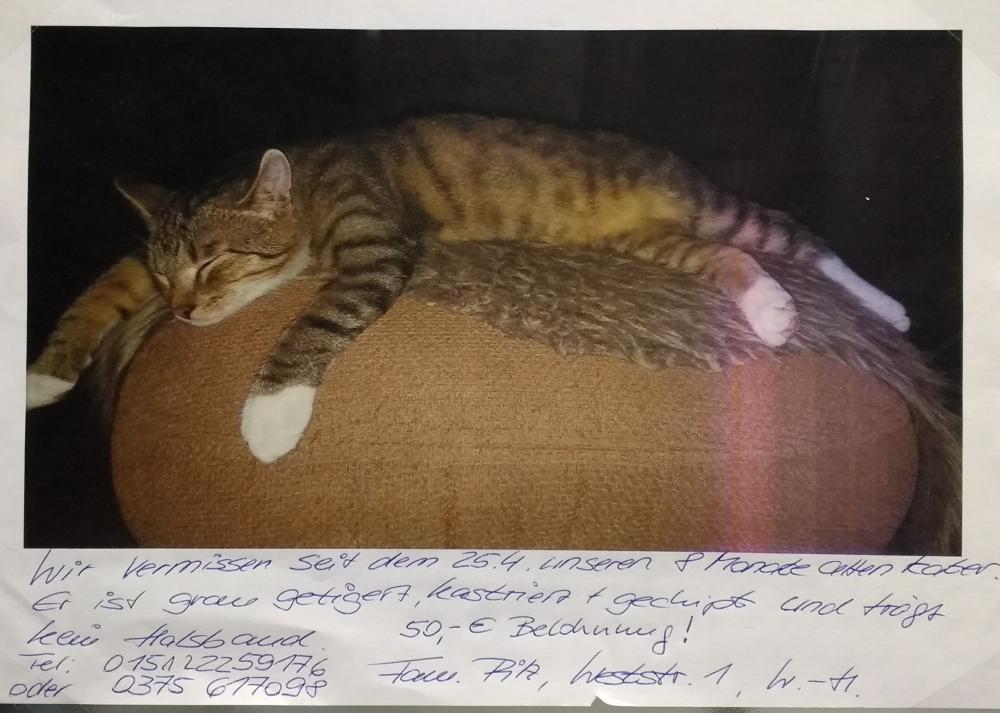 Wir vermissen seit dem 25.4. unseren 8 Monate alten Kater.
Er ist grau getigert, kastriert + gechipt und trägt
kein Halsband. 50,-€ Belohnung!
Tel: 015122259176
oder 0375 617098 Fam. Ritz, Weststr. 1, W.-H.